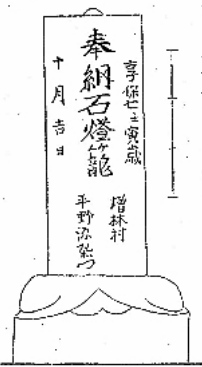 享保七壬寅歳
奉納石燈籠
十月吉日
増林村
平野源